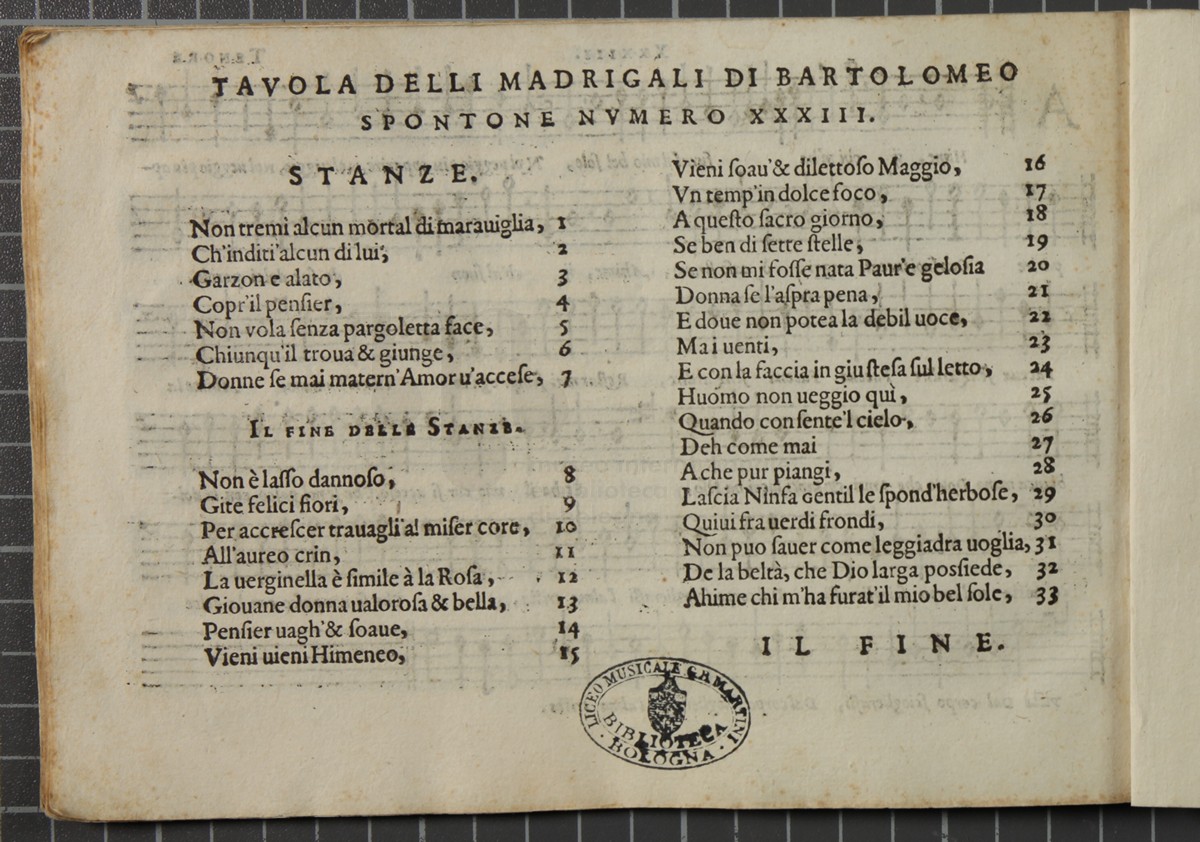 TAVOLA DELLI MADRIGALI DI BARTOLOMEO
SPONTONE NVMERO XXXIII.
STANZE.
Non tremi alcun mortal di marauiglia, 1
Ch'inditi'alcun di lui, 2
Garzon e alato, 3
Copr'il penſier, 4
Non vola ſenza pargoletta face, 5
Chiunqu'il troua & giunge, 6
Donne ſe mai matern'Amor u'acceſe, 7
IL FINE DELLE STANZE.
Non è laſſo dannoſo, 8
Gite felici fiori, 9
Per accreſcer trauagli'al miſer core, 10
All'aureo crin, 11
La uerginella è ſimile à la Roſa, 12
Giouane donna ualoroſa & bella, 13
Penſier uagh'& ſoaue, 14
Vieni uieni Himeneo, 15
Vieni ſoau'& dilettoſo Maggio, 16
Vn temp'in dolce foco, 17
A queſto ſacro giorno, 18
Se ben di ſette ſtelle, 19
Se non mi foſſe nata Paur'e geloſia 20
Donna ſe l'aſpra pena, 21
E doue non potea la debil uoce, 22
Ma i uenti, 23
E con la faccia in giu ſteſa ſul letto, 24
Huomo non ueggio quì, 25
Quando conſente'l cielo, 26
Deh come mai 27
A che pur piangi, 28
Laſcia Ninfa Gentil le ſpond'herboſe, 29
Quiui fra uerdi frondi, 30
Non puo ſauer come leggiadra uoglia, 31
De la beltà, che Dio larga poſſiede, 32
Ahime chi m'ha furat'il mio bel ſole, 33
IL FINE.
LICEO MUSICALE G.B. MARTINI
BIBLIOTECA
BOLOGNA